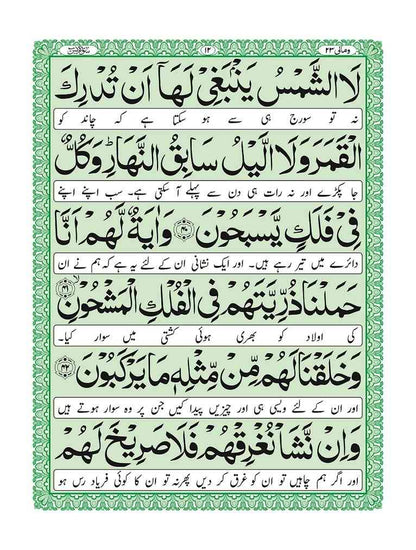 ومالی ٢٣
١٢
لَا الشَّمْسُ يَنْۢبَغِىْ لَهَاۤ اَنْ تُدْرِكَ
نہ تو سورج ہی سے ہو سکتا ہے کہ چاند کو
الْقَمَرَ وَلَا الَّيْلُ سَابِقُ النَّهَارِ ؕ وَكُلٌّ
جا پکڑے اور نہ رات ہی دن سے پہلے آ سکتی ہے۔ سب اپنے اپنے
فِىْ فَلَكٍ يَّسْبَحُوْنَ ﴿٤٠﴾ وَاٰيَةٌ لَّهُمْ اَنَّا
دائرے میں تیر رہے ہیں۔ اور ایک نشانی ان کے لئے یہ ہے کہ ہم نے ان
حَمَلْنَا ذُرِّيَّتَهُمْ فِى الْفُلْكِ الْمَشْحُوْنِ ﴿٤١﴾
کی اولاد کو بھری ہوئی کشتی میں سوار کیا۔
وَخَلَقْنَا لَهُمْ مِّنْ مِّثْلِهٖ مَا يَرْكَبُوْنَ ﴿٤٢﴾
اور ان کے لئے ویسی ہی اور چیزیں پیدا کیں جن پر وہ سوار ہوتے ہیں
وَاِنْ نَّشَاْ نُغْرِقْهُمْ فَلَا صَرِيْخَ لَهُمْ
اور اگر ہم چاہیں تو ان کو غرق کر دیں پھر نہ تو ان کا کوئی فریاد رس ہو